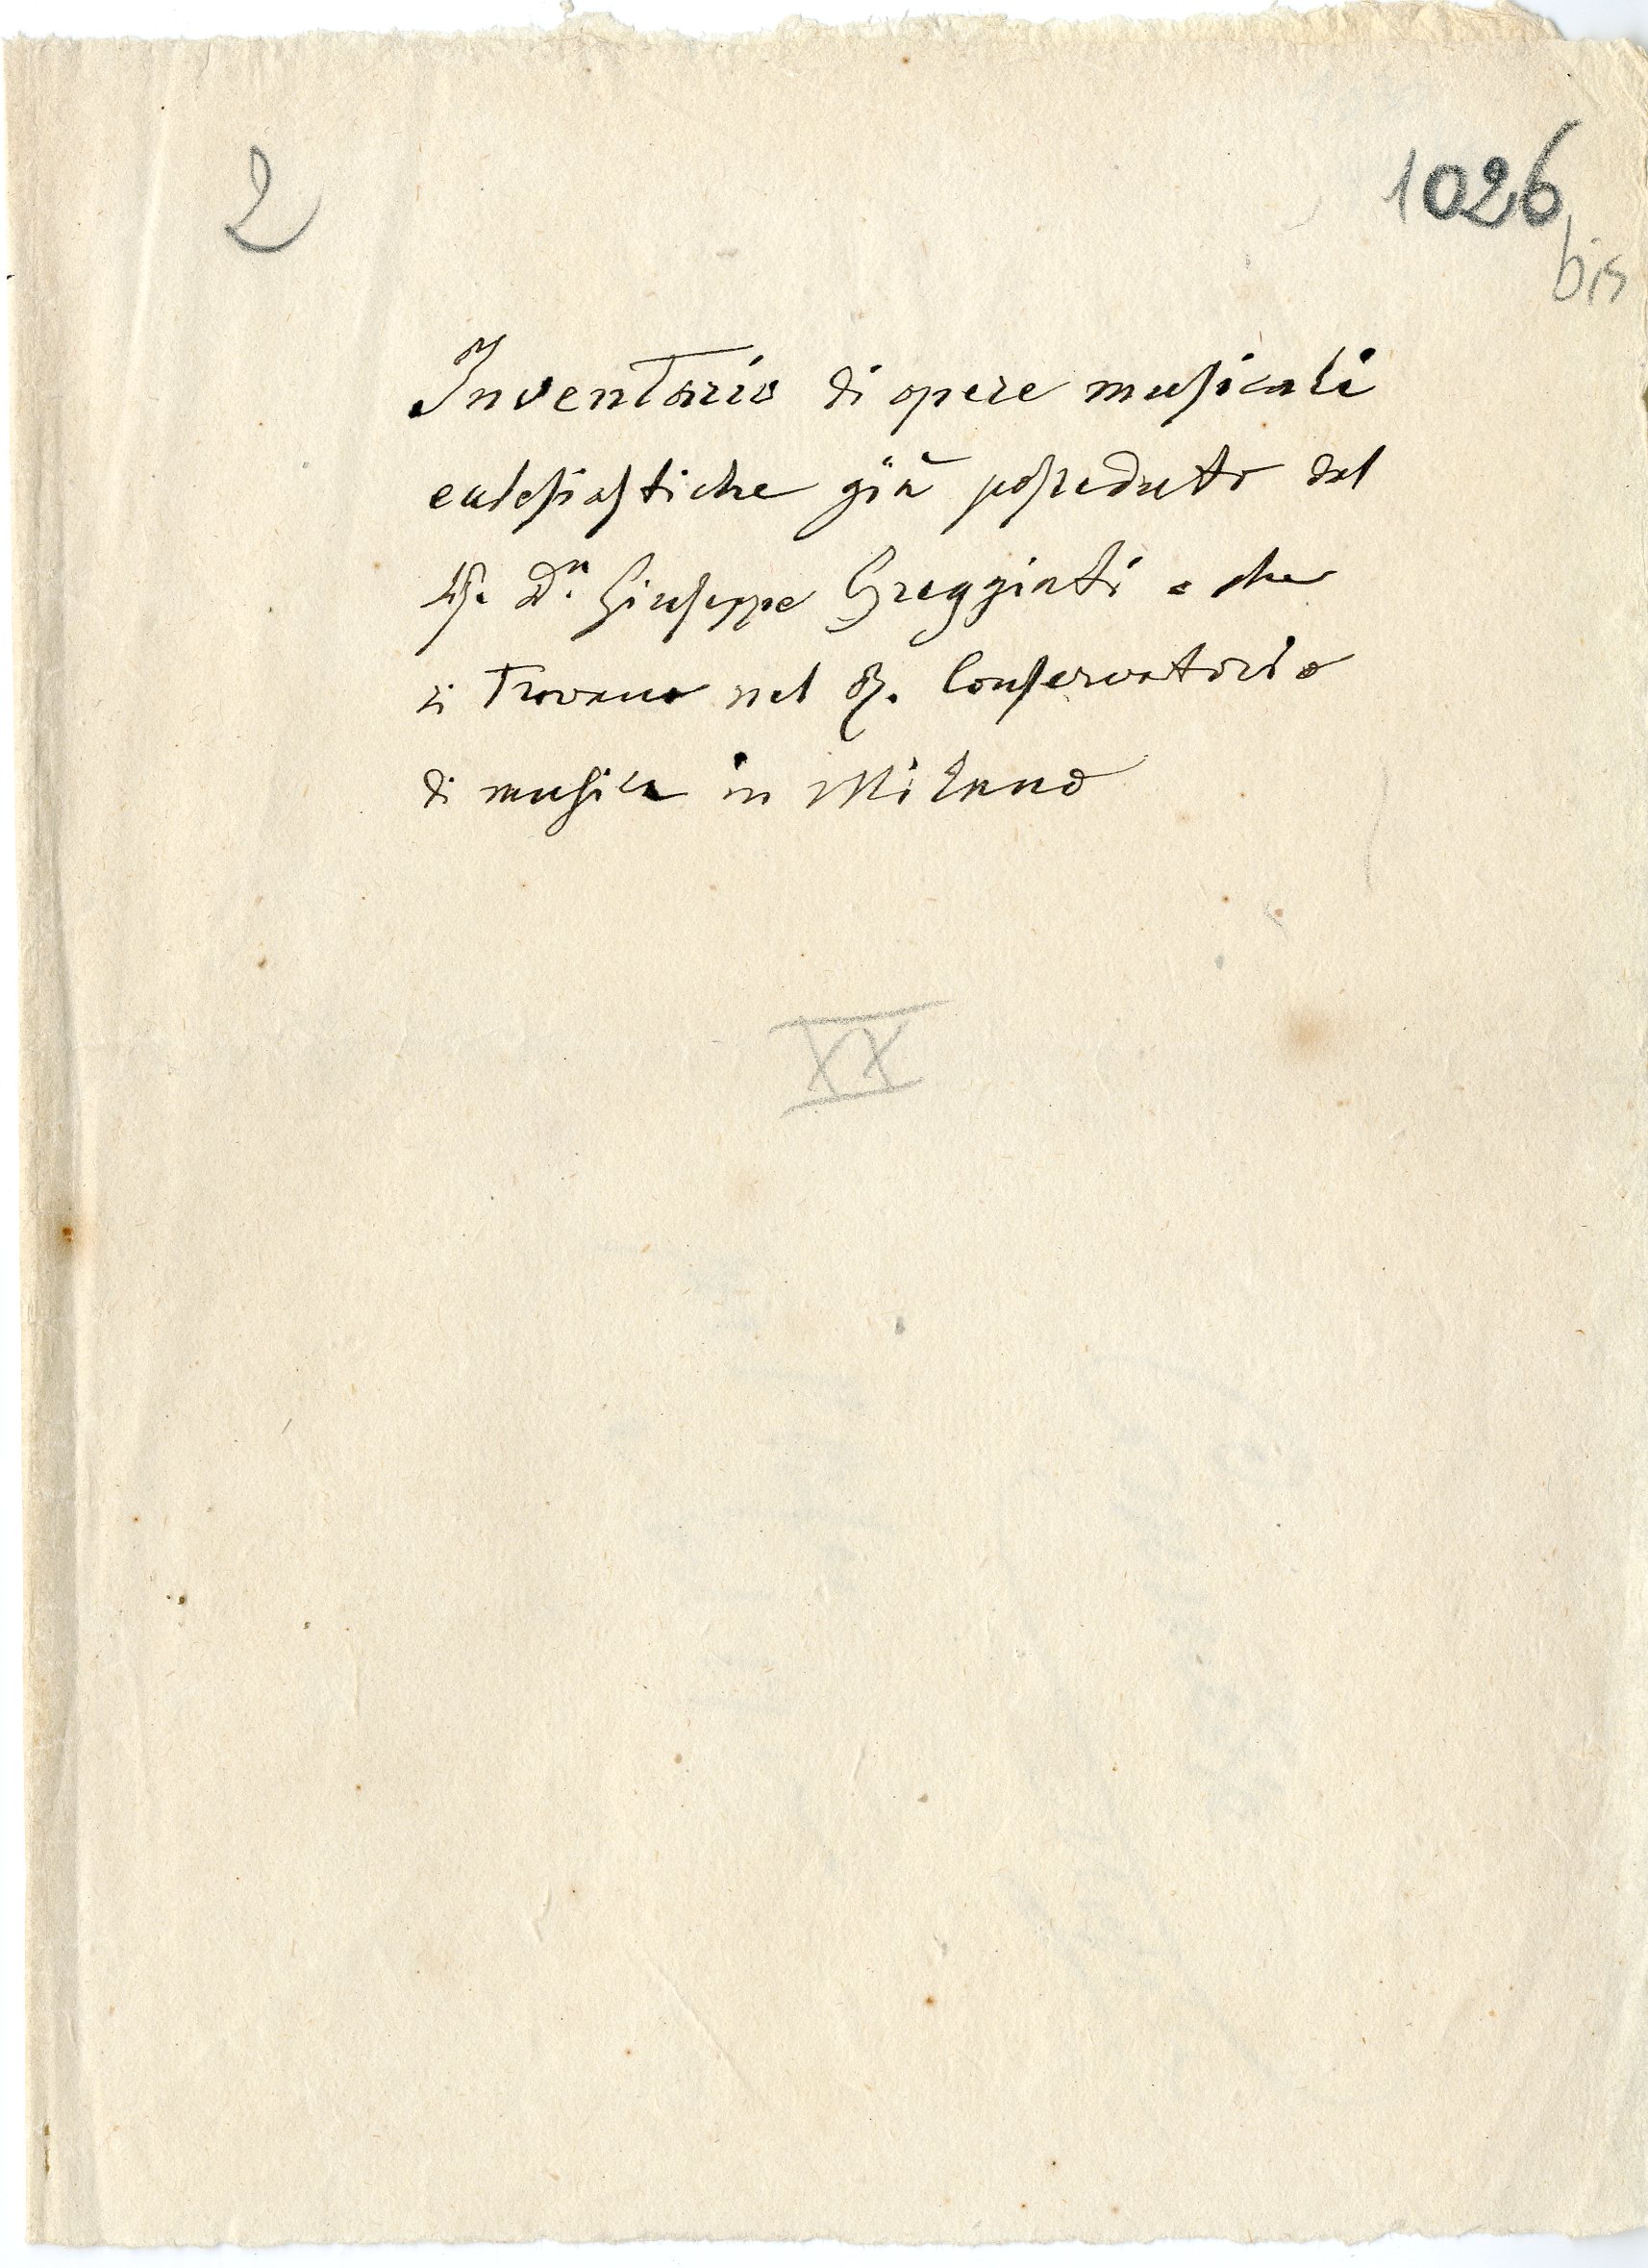 2
1026
bis
Inventario di opere musicali
ecclesiastiche già possedute dal
Dn. Giuseppe Greggiati e che
si trovano nel R. Conservatorio
di musica in Milano
XX